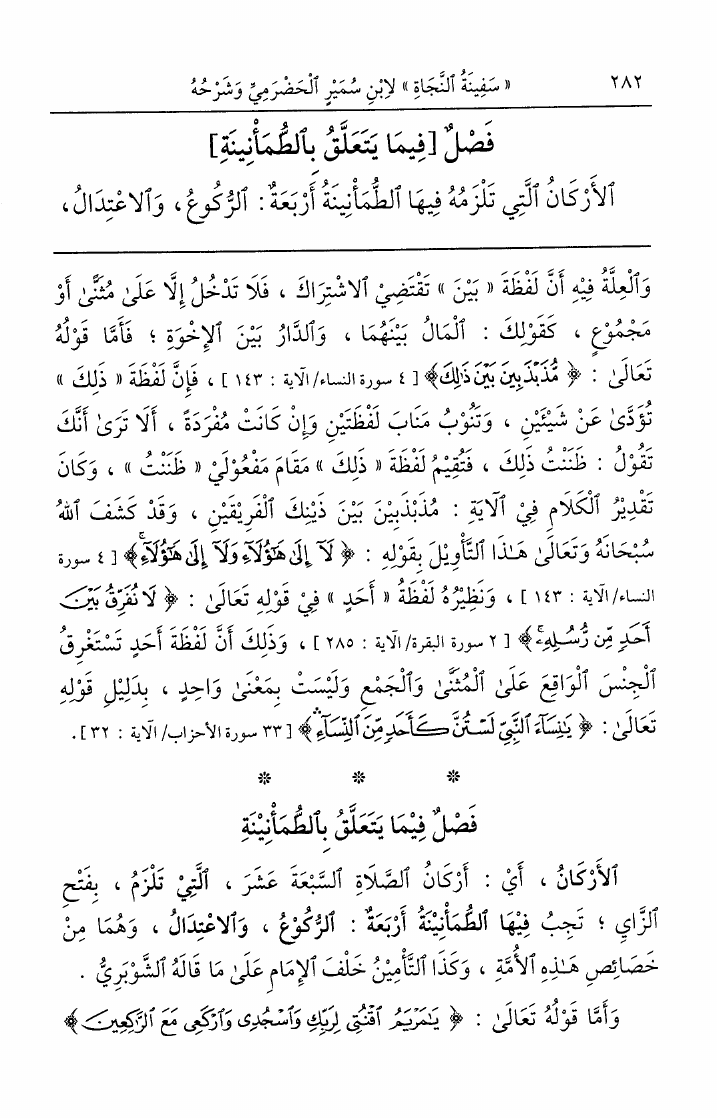 ٢٨٢ « سَفِينَةُ ٱلنَّجَاةِ » لِابْنِ سُمَيْرٍ ٱلْحَضْرَمِيِّ وَشَرْحُهُ
فَصْلٌ [فِيمَا يَتَعَلَّقُ بِٱلطُّمَأْنِينَةِ]
ٱلأَرْكَانُ ٱلَّتِي تَلْزَمُهُ فِيهَا ٱلطُّمَأْنِينَةُ أَرْبَعَةٌ : ٱلرُّكُوعُ، وَٱلاعْتِدَالُ،
وَٱلْعِلَّةُ فِيْهِ أَنَّ لَفْظَةَ « بَيْنَ » تَقْتَضِيْ ٱلاشْتِرَاكَ ، فَلَا تَدْخُلُ إِلَّا عَلَىٰ مُثَنًّىٰ أَوْ
مَجْمُوْعٍ ، كَقَوْلِكَ : ٱلْمَالُ بَيْنَهُمَا ، وَٱلدَّارُ بَيْنَ ٱلإِخْوَةِ ؛ فَأَمَّا قَوْلُهُ
تَعَالَىٰ : ﴿ مُّذَبْذَبِينَ بَيْنَ ذَٰلِكَ﴾ [ ٤ سورة النساء/ الآية : ١٤٣ ] ، فَإِنَّ لَفْظَةَ « ذَلِكَ »
تُؤَدَّىٰ عَنْ شَيْئَيْنِ ، وَتَنُوْبُ مَنَابَ لَفْظَتَيْنِ وَإِنْ كَانَتْ مُفْرَدَةً ، أَلَا تَرَىٰ أَنَّكَ
تَقُوْلُ : ظَنَنْتُ ذَلِكَ ، فَتُقِيْمُ لَفْظَةَ « ذَلِكَ » مَقَامَ مَفْعُوْلَيْ « ظَنَنْتُ » ، وَكَانَ
تَقْدِيْرُ ٱلْكَلَامِ فِيْ ٱلآيَةِ : مُذَبْذَبِيْنَ بَيْنَ ذَيْنِكَ ٱلْفَرِيْقَيْنِ ، وَقَدْ كَشَفَ ٱللهُ
سُبْحَانَهُ وَتَعَالَىٰ هَـٰذَا ٱلتَّأْوِيْلَ بِقَوْلِهِ : ﴿ لَآ إِلَىٰ هَٰٓؤُلَآءِ وَلَآ إِلَىٰ هَٰٓؤُلَآءِۚ﴾ [ ٤ سورة
النساء/ الآية : ١٤٣ ] ، وَنَظِيْرُهُ لَفْظَةُ « أَحَدٍ » فِيْ قَوْلِهِ تَعَالَىٰ : ﴿ لَا نُفَرِّقُ بَيْنَ
أَحَدٍ مِّن رُّسُلِهِۦۚ﴾ [ ٢ سورة البقرة/ الآية : ٢٨٥ ] ، وَذَلِكَ أَنَّ لَفْظَةَ أَحَدٍ تَسْتَغْرِقُ
ٱلْجِنْسَ ٱلْوَاقِعَ عَلَىٰ ٱلْمُثَنَّىٰ وَٱلْجَمْعِ وَلَيْسَتْ بِمَعْنَىٰ وَاحِدٍ ، بِدَلِيْلِ قَوْلِهِ
تَعَالَىٰ : ﴿ يَٰنِسَآءَ ٱلنَّبِيِّ لَسْتُنَّ كَأَحَدٍ مِّنَ ٱلنِّسَآءِۚ﴾ [ ٣٣ سورة الأحزاب/ الآية : ٣٢ ] .
* * *
فَصْلٌ فِيْمَا يَتَعَلَّقُ بِٱلطُّمَأْنِيْنَةِ
ٱلأَرْكَانُ ، أَيْ : أَرْكَانُ ٱلصَّلَاةِ ٱلسَّبْعَةَ عَشَرَ ، ٱلَّتِيْ تَلْزَمُ ، بِفَتْحِ
ٱلزَّايِ ؛ تَجِبُ فِيْهَا ٱلطُّمَأْنِيْنَةُ أَرْبَعَةٌ : ٱلرُّكُوْعُ ، وَٱلاعْتِدَالُ ، وَهُمَا مِنْ
خَصَائِصِ هَـٰذِهِ ٱلأُمَّةِ ، وَكَذَا ٱلتَّأْمِيْنُ خَلْفَ ٱلإِمَامِ عَلَىٰ مَا قَالَهُ ٱلشَّوْبَرِيُّ .
وَأَمَّا قَوْلُهُ تَعَالَىٰ : ﴿ يَٰمَرْيَمُ ٱقْنُتِى لِرَبِّكِ وَٱسْجُدِى وَٱرْكَعِى مَعَ ٱلرَّٰكِعِينَ﴾